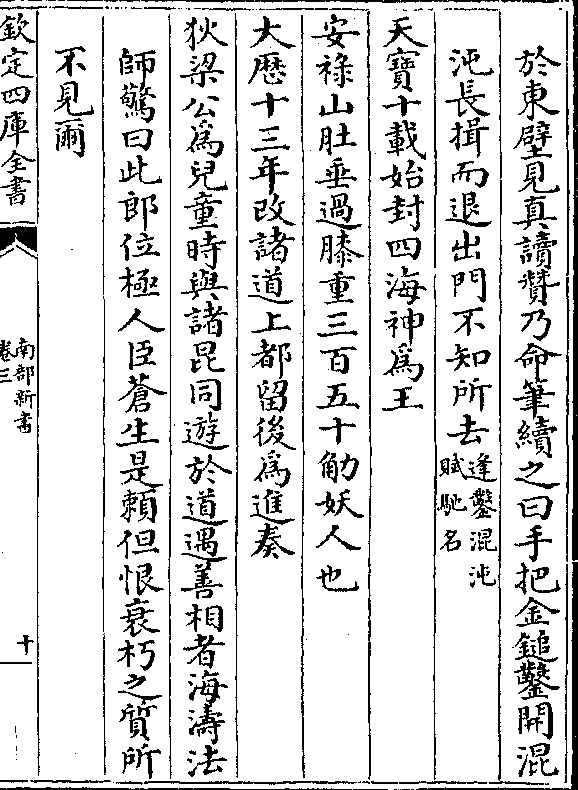 於東壁見真讀贊乃命筆續之曰手把金鎚鑿開混
沌長揖而退出門不知所去逢鑿混沌
賦馳名
天寶十載始封四海神為王
安祿山肚垂過膝重三百五十觔妖人也
大厯十三年改諸道上都留後為進奏
狄梁公為兒童時與諸昆同遊於道遇善相者海濤法
師驚曰此郎位極人臣蒼生是賴但恨衰朽之質所
不見爾
欽定四庫全書
南部新書
卷三
十